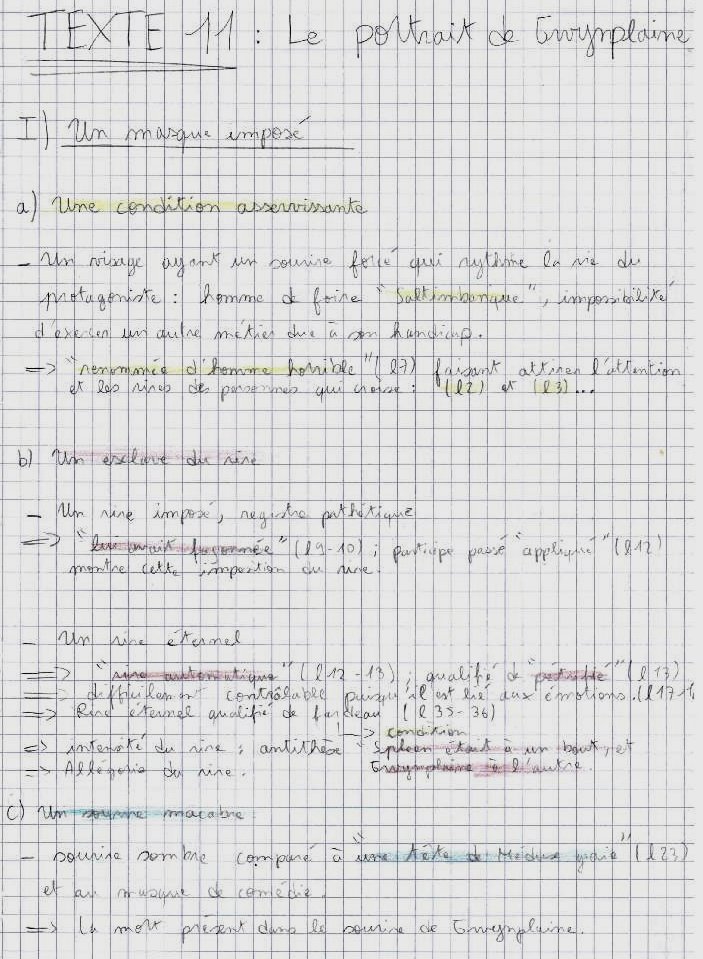 TEXTE 11 : Le portrait de Gwynplaine
I) Un masque imposé
a) Une condition asservissante
- Un visage ayant un sourire forcé qui rythme la vie du
protagoniste : homme de foire "Saltimbanque", impossibilité
d'exercer un autre métier due à son handicap.
=> "renommée d'homme horrible" (l7) faisant attirer l'attention
et les rires des personnes qui croise : (l2) et (l3)...
b) Un esclave du rire
- Un rire imposé, registre pathétique
=> "lui avait façonnée" (l9-10) ; participe passé "appliqué" (l12)
montre cette imposition du rire.
- Un rire éternel
=> "rire automatique" (l12-13) ; qualifié de "pétrifié" (l13)
=> difficilement contrôlable puisqu'il est lié aux émotions. (l17-1
=> Rire éternel qualifié de fardeau (l35-36)
-> condition
=> intensité du rire : antithèse "Spleen était à un bout, et
=> Allégorie du rire. Gwynplaine à l'autre.
c) Un sourire macabre
- sourire sombre comparé à "une tête de Méduse gaie" (l23)
et au masque de comédie.
=> La mort présent dans le sourire de Gwynplaine.